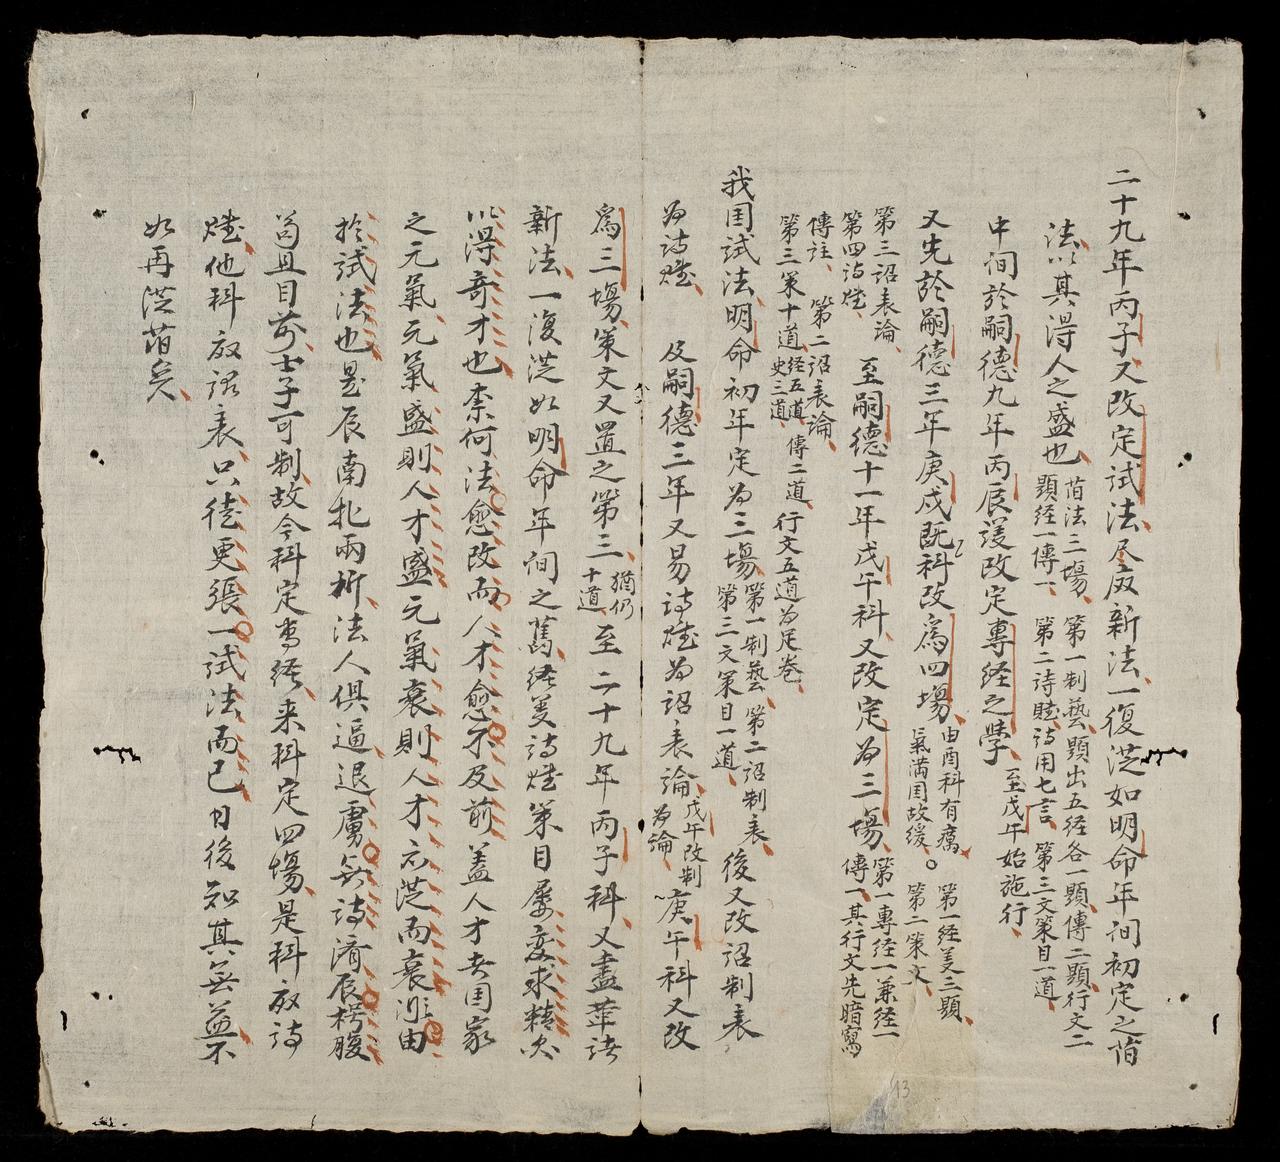 二十九年丙子又改定試法尽废新法一復從如明命年间初定之旧
法以其得人之盛也旧法三場第一制藝題出五经各一題傳二題行文二
題经一傳一第二诗賦诗用七言第三文策目一道
中间於嗣德九年丙辰議改定專经之學至戊午始施行
又先於嗣德三年庚戌既科改為四場由酉科有癘
氣满国故缓第一经義三題
第二策文
第三詔表論
第四诗賦
至嗣德十一年戊午科又改定為三場第一專经一兼经一
傳一其行文先暗寫
傳註第二詔表論
第三策十道经五道
史三道傳二道行文五道为足卷
我国試法明命初年定为三場第一制藝第二詔制表
第三文策目一道後又改詔制表
为诗賦及嗣德三年又易诗賦为詔表論戊午改制
为論庚午科又改
為三場策文又置之第三猶仍
十道至二十九年丙子科又盡革诸
新法一復從如明命年间之舊经義诗賦策目屡变求精必
以得奇才也柰何法愈改而人才愈不及前盖人才者国家
之元氣元氣盛則人才盛元氣衰則人才亦從而衰非由
於試法也是辰南北兩圻法人俱逼退虜無诗濟辰枵腹
苟且目前士子可制故今科定专经来科定四場是科放诗
賦他科放詔表只徒更張一試法而已日後知其無益不
如再從旧矣